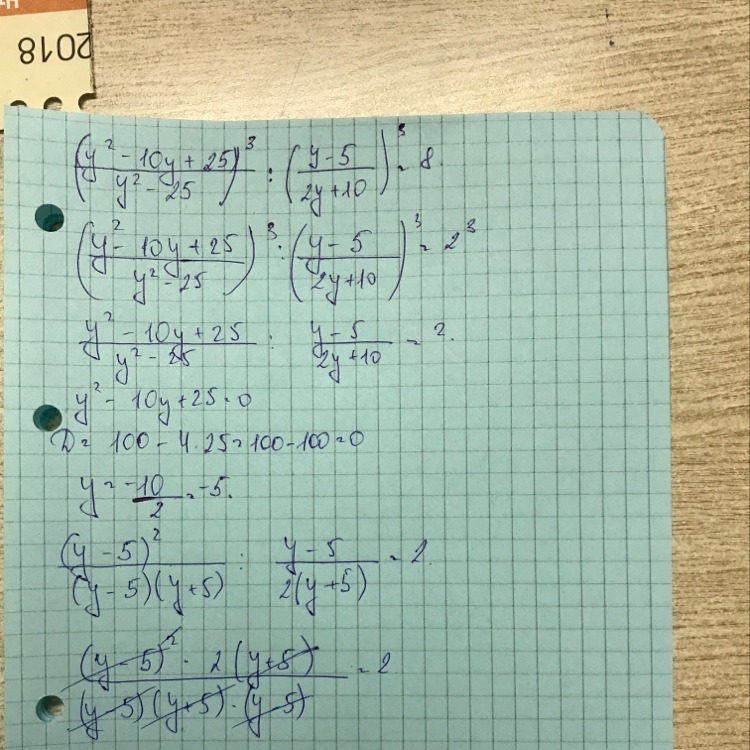 2018
((y² - 10y + 25)/(y² - 25))³ : ((y - 5)/(2y + 10))³ = 8.
((y² - 10y + 25)/(y² - 25))³ : ((y - 5)/(2y + 10))³ = 2³
(y² - 10y + 25)/(y² - 25) : (y - 5)/(2y + 10) = 2.
y² - 10y + 25 = 0
D = 100 - 4 · 25 = 100 - 100 = 0
y = -10/2 = -5.
(y - 5)²/((y - 5)(y + 5)) : (y - 5)/(2(y + 5)) = 2.
((y - 5)² · 2(y + 5))/((y - 5)(y + 5) · (y - 5)) = 2